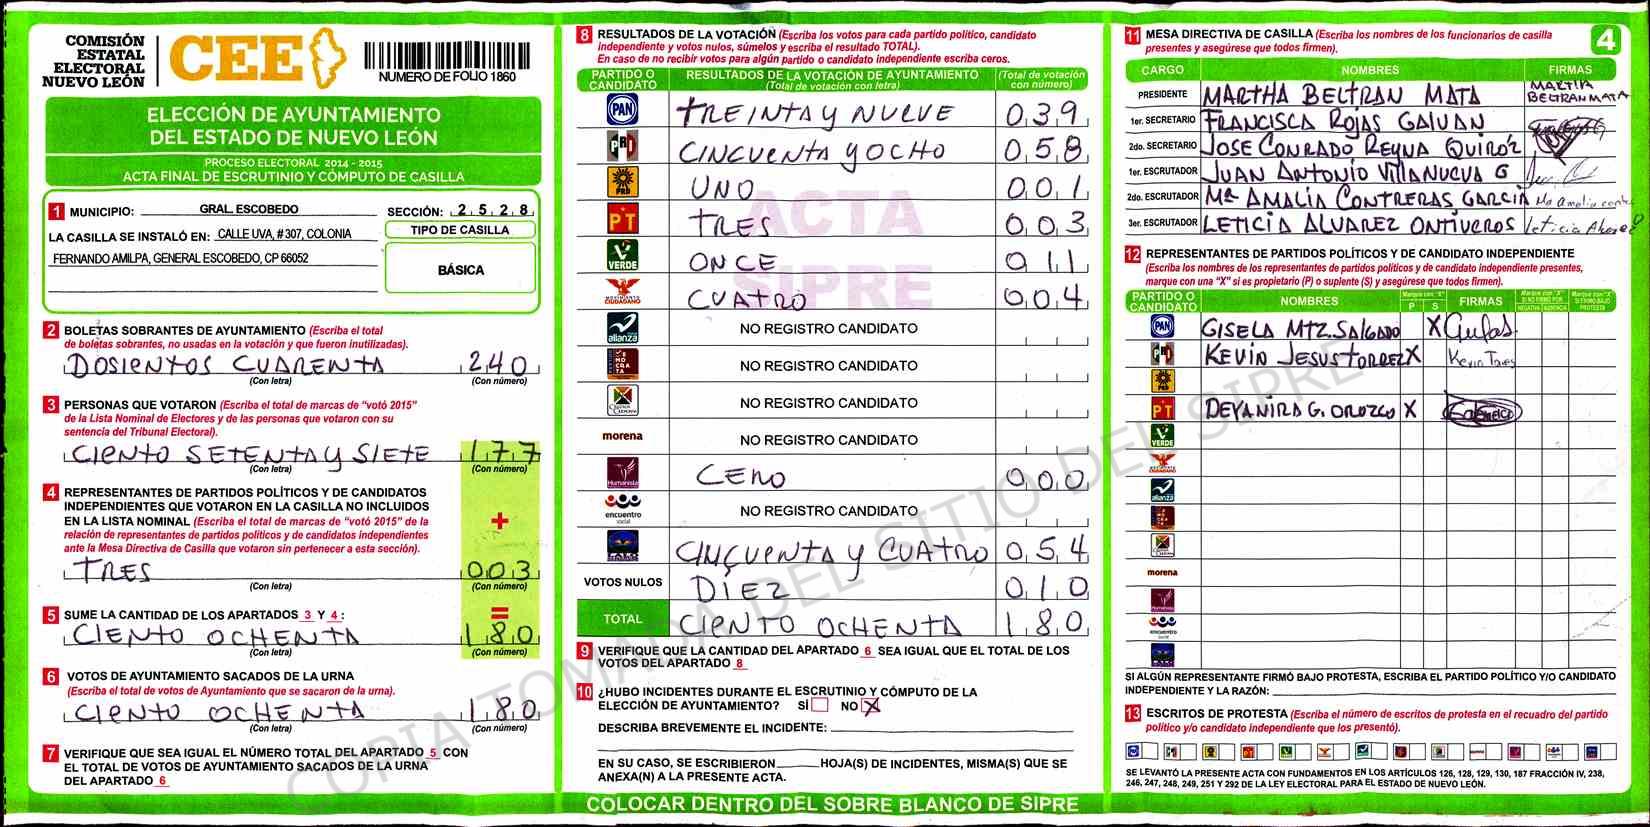 COMISIÓN
ESTATAL
ELECTORAL
NUEVO LEÓN
CEE
NUMERO DE FOLIO 1860
ELECCIÓN DE AYUNTAMIENTO
DEL ESTADO DE NUEVO LEÓN
PROCESO ELECTORAL 2014 - 2015
ACTA FINAL DE ESCRUTINIO Y CÓMPUTO DE CASILLA
1 MUNICIPIO: GRAL. ESCOBEDO SECCIÓN: 2 5 2 8
LA CASILLA SE INSTALÓ EN: CALLE UVA, # 307, COLONIA
FERNANDO AMILPA, GENERAL ESCOBEDO, CP 66052
TIPO DE CASILLA
BÁSICA
2 BOLETAS SOBRANTES DE AYUNTAMIENTO (Escriba el total
de boletas sobrantes, no usadas en la votación y que fueron inutilizadas).
DOSIENTOS CUARENTA 240
(Con letra) (Con número)
3 PERSONAS QUE VOTARON (Escriba el total de marcas de "votó 2015"
de la Lista Nominal de Electores y de las personas que votaron con su
sentencia del Tribunal Electoral).
CIENTO SETENTA Y SIETE 177
(Con letra) (Con número)
4 REPRESENTANTES DE PARTIDOS POLÍTICOS Y DE CANDIDATOS
INDEPENDIENTES QUE VOTARON EN LA CASILLA NO INCLUIDOS
EN LA LISTA NOMINAL (Escriba el total de marcas de "votó 2015" de la
relación de representantes de partidos políticos y de candidatos independientes
ante la Mesa Directiva de Casilla que votaron sin pertenecer a esta sección).
+
TRES 003
(Con letra) (Con número)
5 SUME LA CANTIDAD DE LOS APARTADOS 3 Y 4 : =
CIENTO OCHENTA 180
(Con letra) (Con número)
6 VOTOS DE AYUNTAMIENTO SACADOS DE LA URNA
(Escriba el total de votos de Ayuntamiento que se sacaron de la urna).
CIENTO OCHENTA 180
(Con letra) (Con número)
7 VERIFIQUE QUE SEA IGUAL EL NÚMERO TOTAL DEL APARTADO 5 CON
EL TOTAL DE VOTOS DE AYUNTAMIENTO SACADOS DE LA URNA
DEL APARTADO 6
8 RESULTADOS DE LA VOTACIÓN (Escriba los votos para cada partido político, candidato
independiente y votos nulos, súmelos y escriba el resultado TOTAL).
En caso de no recibir votos para algún partido o candidato independiente escriba ceros.
PARTIDO O CANDIDATO RESULTADOS DE LA VOTACIÓN DE AYUNTAMIENTO (Total de votación con letra) (Total de votación con número)
PAN TREINTA Y NUEVE 039
PRI CINCUENTA Y OCHO 058
PRD UNO 001
PT TRES 003
VERDE ONCE 011
MOVIMIENTO CIUDADANO CUATRO 004
alianza NO REGISTRO CANDIDATO
DEMOCRATA NO REGISTRO CANDIDATO
NO REGISTRO CANDIDATO
morena NO REGISTRO CANDIDATO
Humanista CERO 000
encuentro social NO REGISTRO CANDIDATO
CINCUENTA Y CUATRO 054
VOTOS NULOS DIEZ 010
TOTAL CIENTO OCHENTA 180
ACTA
SIPRE
9 VERIFIQUE QUE LA CANTIDAD DEL APARTADO 6 SEA IGUAL QUE EL TOTAL DE LOS
VOTOS DEL APARTADO 8
10 ¿HUBO INCIDENTES DURANTE EL ESCRUTINIO Y CÓMPUTO DE LA
ELECCIÓN DE AYUNTAMIENTO? SÍ NO X
DESCRIBA BREVEMENTE EL INCIDENTE:
EN SU CASO, SE ESCRIBIERON HOJA(S) DE INCIDENTES, MISMA(S) QUE SE
ANEXA(N) A LA PRESENTE ACTA.
COLOCAR DENTRO DEL SOBRE BLANCO DE SIPRE
11 MESA DIRECTIVA DE CASILLA (Escriba los nombres de los funcionarios de casilla
presentes y asegúrese que todos firmen).
4
CARGO NOMBRES FIRMAS
PRESIDENTE MARTHA BELTRAN MATA MARTHA BELTRAN MATA
1er. SECRETARIO FRANCISCA ROJAS GALVAN
2do. SECRETARIO JOSE CONRADO REYNA QUIROZ
1er. ESCRUTADOR JUAN ANTONIO VILLANUEVA G
2do. ESCRUTADOR Mª AMALIA CONTRERAS GARCIA Ma Amalia
3er. ESCRUTADOR LETICIA ALVAREZ ONTIVEROS Leticia
12 REPRESENTANTES DE PARTIDOS POLÍTICOS Y DE CANDIDATO INDEPENDIENTE
(Escriba los nombres de los representantes de partidos políticos y de candidato independiente presentes,
marque con una "X" si es propietario (P) o suplente (S) y asegúrese que todos firmen).
PARTIDO O CANDIDATO NOMBRES Marque con "X" P S FIRMAS Marque con "X" SI NO FIRMÓ POR NEGATIVA AUSENCIA Marque con "X" SI FIRMÓ BAJO PROTESTA
PAN GISELA MTZ. SALGADO X
PRI KEVIN JESUS TORREZ X Kevin
PRD
PT DEYANIRA G. OROZCO X
VERDE
alianza
morena
Humanista
encuentro social
SI ALGÚN REPRESENTANTE FIRMÓ BAJO PROTESTA, ESCRIBA EL PARTIDO POLÍTICO Y/O CANDIDATO
INDEPENDIENTE Y LA RAZÓN:
13 ESCRITOS DE PROTESTA (Escriba el número de escritos de protesta en el recuadro del partido
político y/o candidato independiente que los presentó).
SE LEVANTÓ LA PRESENTE ACTA CON FUNDAMENTOS EN LOS ARTÍCULOS 126, 128, 129, 130, 187 FRACCIÓN IV, 238,
246, 247, 248, 249, 251 Y 292 DE LA LEY ELECTORAL PARA EL ESTADO DE NUEVO LEÓN.
COPIA TOMADA DEL SITIO DEL SIPRE